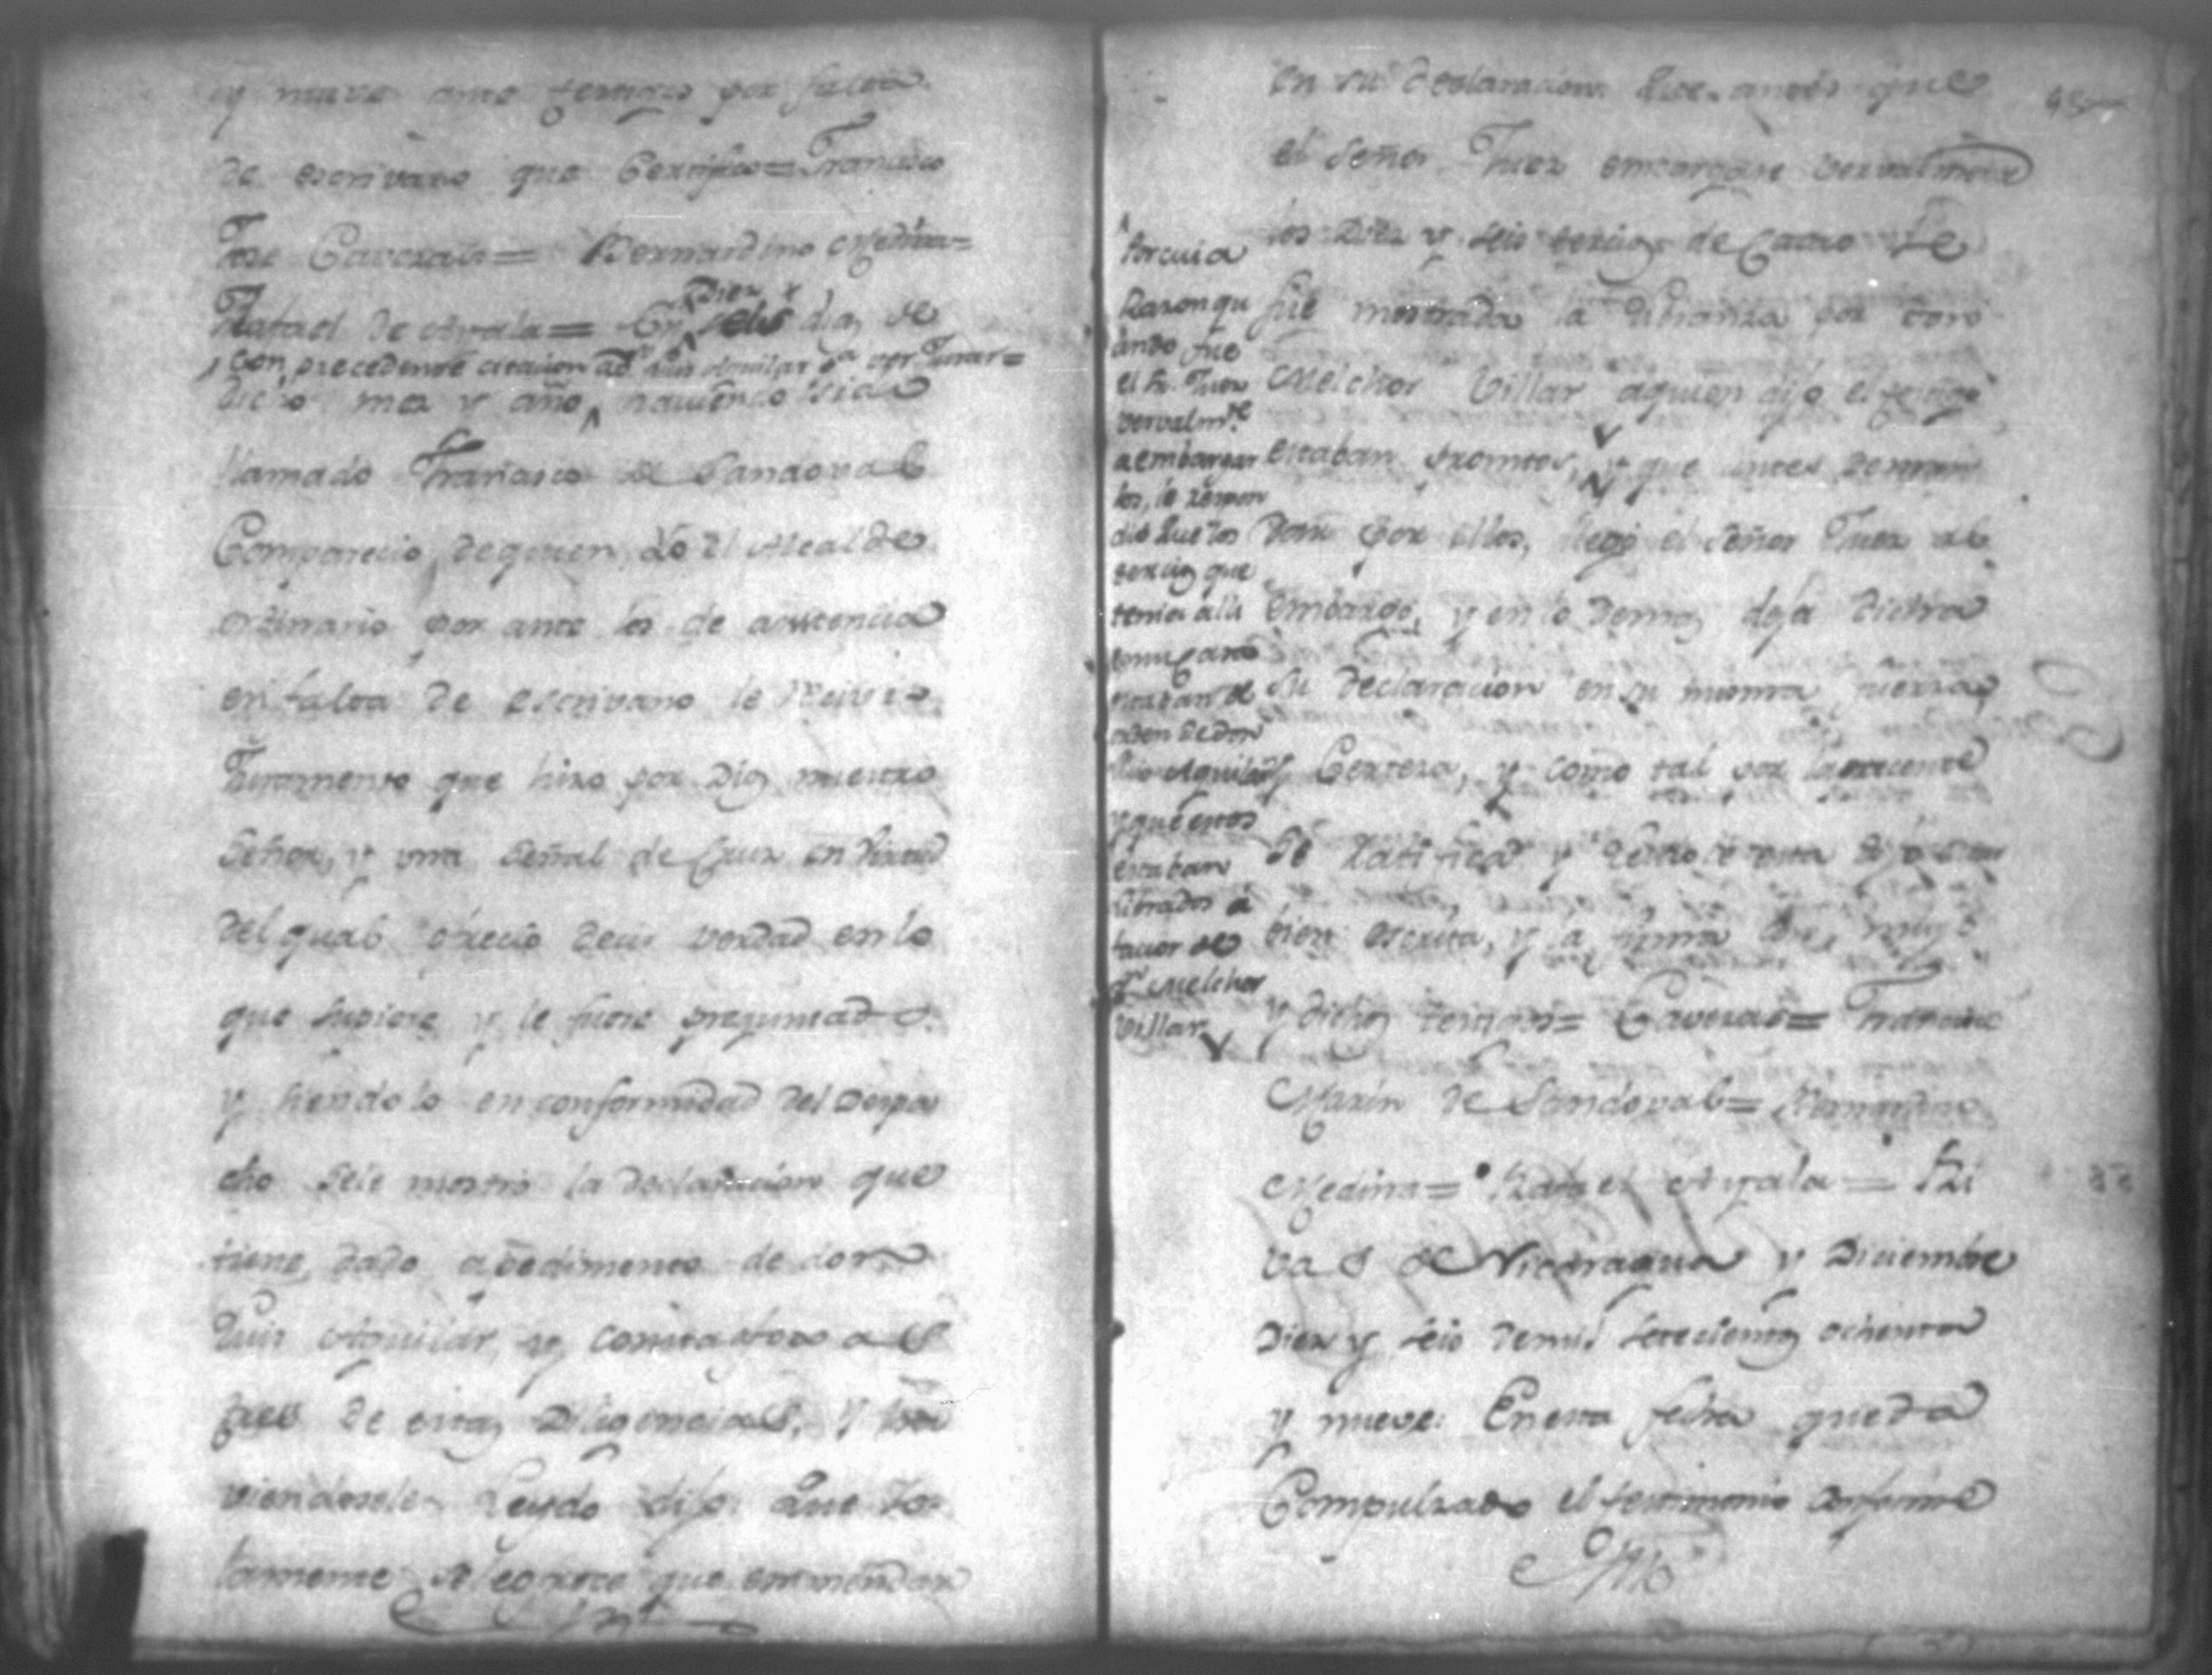 y nueve ante testigos por falta
de escrivano que Certifico = Francisco
Jose Caverais = Bernardino Medina =
Rafael de Ayala = En Diez y seis dias de
con precedente citacion
dicho mes y año haviendo sido
llamado Francisco de Sandoval
Comparecio, de quien Yo el Alcalde
ordinario por ante los de asistencia
en falta de escrivano le Reciví
Juramento que hizo por Dios nuestro
Señor, y una Señal de Cruz en Virtud
del qual ofrecio decir verdad en lo
que supiere y le fuere preguntado
y siendolo en conformidad del Despa
cho sele mostró la declaracion que
tiene dado a pedimento de don
Luis Aguilar, y consta
de estas Diligencias, y
viendosele Leydo dijo Que so
lamente se le ofrece que enmendar
en su declaracion antes que
el Señor Juez embargase vervalmente
los Diez y seis tercios de Cacao Le
fué mostrada la Libranza por don
Melchor Villar aquien dijo el testigo
estaban promtos, y que antes
por ellos, llegó el Señor Juez al
embargo, y en lo demas deja dicha
su declaracion en su misma fuerza,
y Certeza, y como tal por la presente
Se Ratifica y
bien escrita, y la firma
y dichos testigos = Caverais = Francisco
Marin de Sandoval = Bernardino
Medina = Rafael Ayala = Ri
vas de Nicaragua y Diciembre
Diez y seis de mil setecientos ochenta
y nueve. En esta fecha queda
Compulzado el testimonio conforme
por cuia
Razon qu
ando fue
el Sr. Juez
vervalmte
a embargar
los, le respon
dió que los
tercios que
tenia alli
estaban
orden de don
Luis Aguilar
y que estos
estaban
librados a
favor de
Dn Melchor
Villar